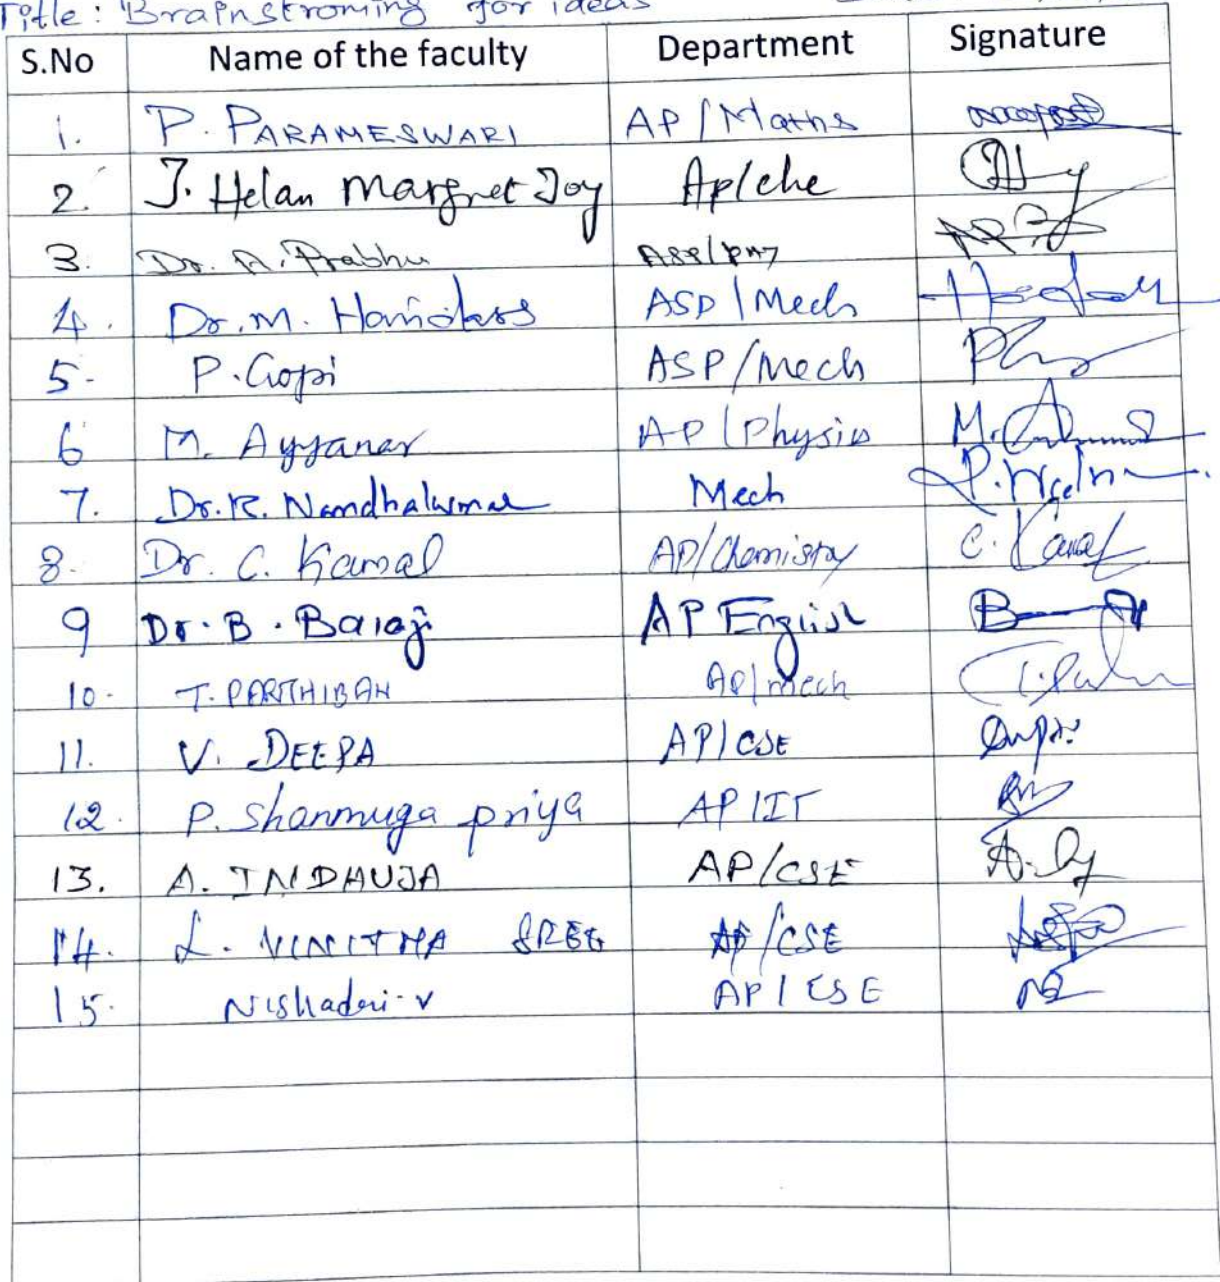 Title: Brainstroming for ideas
S.No Name of the faculty Department Signature
1. P. PARAMESWARI AP/Maths
2. J. Helan Margret Joy Ap/che
3. Dr. A. Prabhu
4. Dr. M. ASP/Mech
5. P. Gopi ASP/Mech
6 M. Ayyanar AP/Physics M.
7. Dr. R. Nandhakumar Mech
8. Dr. C. Kamal AP/Chemistry C. Kamal
9 Dr. B. Balaji AP English
10. T. PARTHIBAN AP/mech
11. V. DEEPA AP/CSE
12. P. Shanmuga priya AP/IT
13. A. INDHUJA AP/CSE
14. L. VINITHA SREE AP/CSE
15. Nishadevi-V AP/CSE